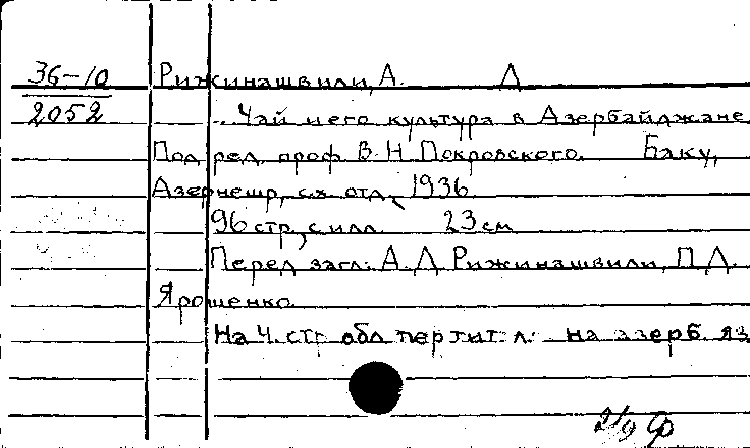 36-10 Рижинашвили, А. Д
2052 ...Чай и его культура в Азербайджане
Под ред. проф. В. Н. Покровского. Баку,
Азернешр, с.х. отд., 1936.
96 стр., с илл. 23 см
Перед загл.: А. Д. Рижинашвили, П. Д.
Ярошенко.
На 4. стр. обл. пер. тит. л. на азерб. яз.
2/9